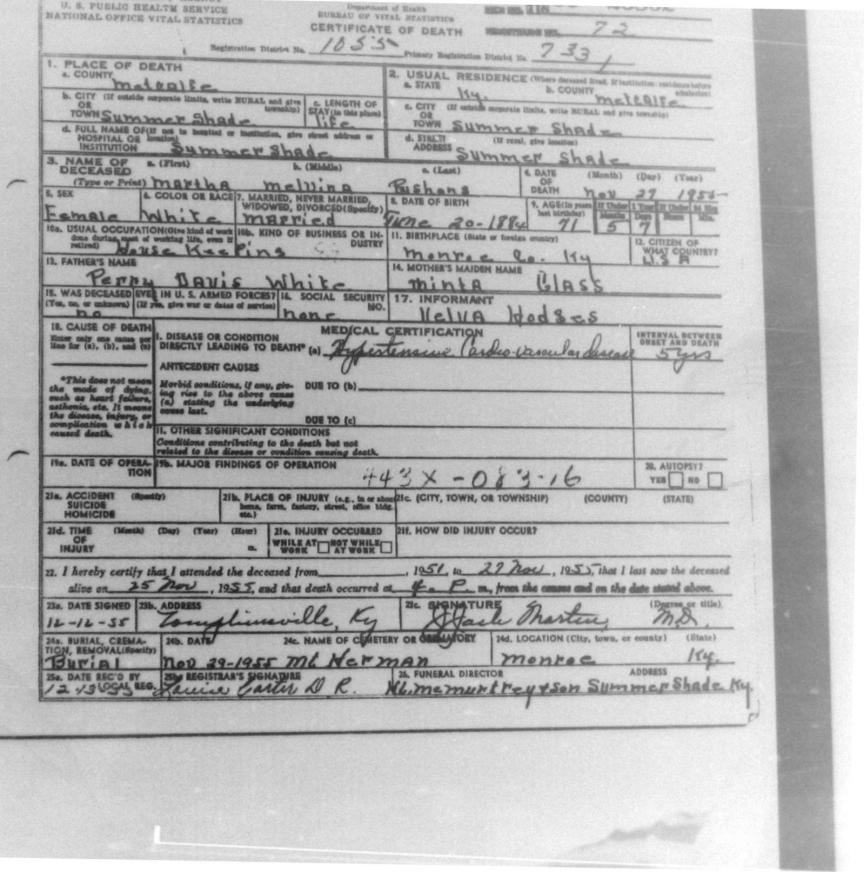 U. S. PUBLIC HEALTH SERVICE
NATIONAL OFFICE VITAL STATISTICS
Department of Health
BUREAU OF VITAL STATISTICS
CERTIFICATE OF DEATH
72
Registration District No. 1055 Primary Registration District No. 7331
1. PLACE OF DEATH
a. COUNTY Metcalfe
2. USUAL RESIDENCE (Where deceased lived. If institution: residence before admission)
a. STATE Ky. b. COUNTY Metcalfe
b. CITY (If outside corporate limits, write RURAL and give township)
OR TOWN Summer Shade
c. LENGTH OF STAY (in this place) life
c. CITY (If outside corporate limits, write RURAL and give township)
OR TOWN Summer Shade
d. FULL NAME OF (If not in hospital or institution, give street address or location)
HOSPITAL OR INSTITUTION Summer Shade
d. STREET ADDRESS (If rural, give location) Summer Shade
3. NAME OF DECEASED (Type or Print)
a. (First) b. (Middle) c. (Last)
Martha Melvina
4. DATE OF DEATH (Month) (Day) (Year)
Nov 27 1955
5. SEX Female
6. COLOR OR RACE White
7. MARRIED, NEVER MARRIED, WIDOWED, DIVORCED (Specify) Married
8. DATE OF BIRTH June 20-1884
9. AGE (In years last birthday) 71
If Under 1 Year Months 5 Days 7
If Under 24 Hrs. Hours Min.
10a. USUAL OCCUPATION (Give kind of work done during most of working life, even if retired) House Keeping
10b. KIND OF BUSINESS OR INDUSTRY
11. BIRTHPLACE (State or foreign country) Monroe Co. Ky
12. CITIZEN OF WHAT COUNTRY? U.S A
13. FATHER'S NAME Perry Davis White
14. MOTHER'S MAIDEN NAME Minta Glass
15. WAS DECEASED EVER IN U. S. ARMED FORCES?
(Yes, no, or unknown) (If yes, give war or dates of service)
no
16. SOCIAL SECURITY NO. none
17. INFORMANT Velva Hodges
18. CAUSE OF DEATH
Enter only one cause per line for (a), (b), and (c)
MEDICAL CERTIFICATION
INTERVAL BETWEEN ONSET AND DEATH
I. DISEASE OR CONDITION DIRECTLY LEADING TO DEATH* (a) Hypertensive Cardio-vascular disease 5 yrs
*This does not mean the mode of dying, such as heart failure, asthenia, etc. It means the disease, injury, or complication which caused death.
ANTECEDENT CAUSES
Morbid conditions, if any, giving rise to the above cause (a) stating the underlying cause last.
DUE TO (b)
DUE TO (c)
II. OTHER SIGNIFICANT CONDITIONS
Conditions contributing to the death but not related to the disease or condition causing death.
19a. DATE OF OPERATION
19b. MAJOR FINDINGS OF OPERATION
443X-083-16
20. AUTOPSY?
YES NO
21a. ACCIDENT SUICIDE HOMICIDE (Specify)
21b. PLACE OF INJURY (e.g., in or about home, farm, factory, street, office bldg., etc.)
21c. (CITY, TOWN, OR TOWNSHIP) (COUNTY) (STATE)
21d. TIME OF INJURY (Month) (Day) (Year) (Hour) m.
21e. INJURY OCCURRED
WHILE AT WORK NOT WHILE AT WORK
21f. HOW DID INJURY OCCUR?
22. I hereby certify that I attended the deceased from , 1951, to 27 Nov, 1955, that I last saw the deceased
alive on 25 Nov, 1955, and that death occurred at 4. P. m., from the causes and on the date stated above.
23a. DATE SIGNED 12-12-55
23b. ADDRESS Tompkinsville, Ky
23c. SIGNATURE (Degree or title) M.D.
24a. BURIAL, CREMATION, REMOVAL (Specify) Burial
24b. DATE Nov 29-1955
24c. NAME OF CEMETERY OR CREMATORY Mt Herman
24d. LOCATION (City, town, or county) (State) Monroe Ky.
25a. DATE REC'D BY LOCAL REG. 12-13-55
25b. REGISTRAR'S SIGNATURE Louise Carter D R.
26. FUNERAL DIRECTOR ADDRESS
McMurtrey & Son Summer Shade Ky.